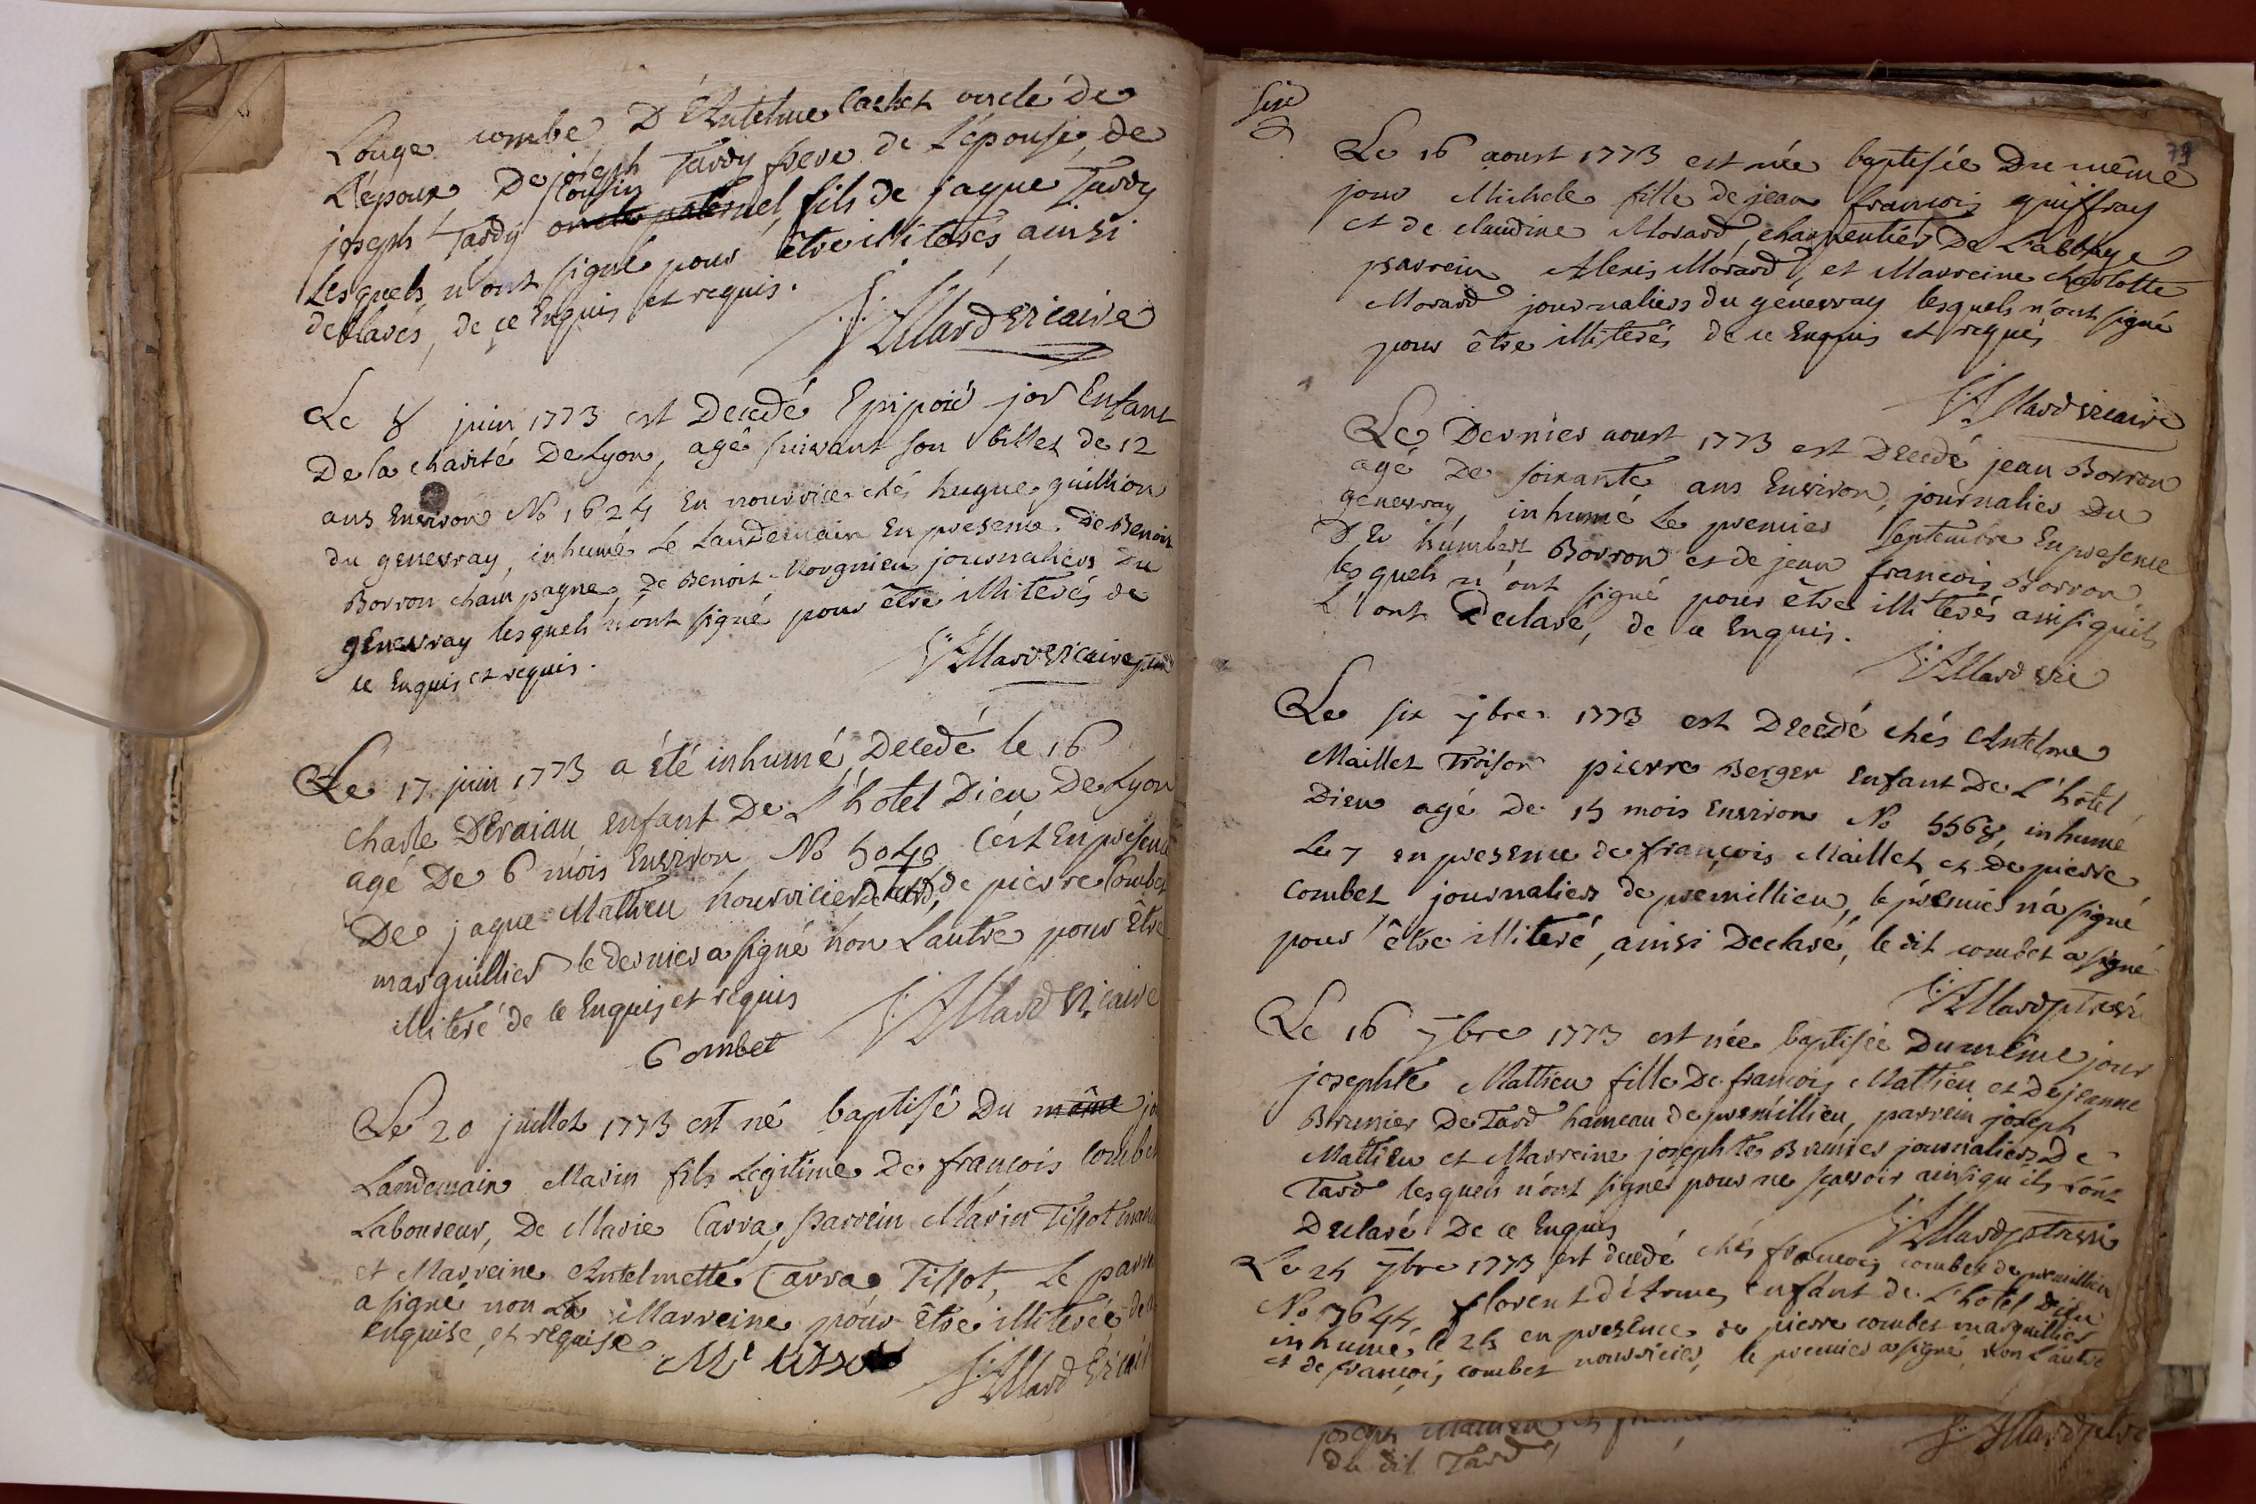 Louge combe D'Antelme Cachet oncle de
L'époux De joseph Tardy frere de L'épouse, de
cousin
joseph Tardy oncle paternel fils de jaque Tardy
Lesquels n'ont signé pour être illiterés ainsi
declarés, de ce Enquis et requis.
Allard vicaire
Le 8 juin 1773 est Decedé Epipoid jor Enfant
De la charité De Lyon, agé suivant son billet de 12
ans Environ No 1624 En nourrice chés hugue guillion
du genevray, inhumé Le Landemain En presence De Benoit
Borron champagne, De Benoit Mougnieu journaliers du
genevray lesquels n'ont signé pour être illiterés de
ce Enquis et requis.
Allard vicaire
Le 17 juin 1773 a été inhumé, Decedé le 16
charle Deraiau enfant De L'hotel Dieu De Lyon
agé De 6 mois Environ No 5040 C'est En presence
De jaque Mathieu nourricier De tard, de pierre Combet
marguillier le dernier a signé non Lautre pour Etre
illiteré de ce Enquis et requis
Combet
Allard vicaire
Le 20 juillet 1773 est né baptisé Du même jo
Landemain Marin fils Legitime De françois Combet
Laboureur, De Marie Carra, parrein Marin Tissot
et Marreine Antelmette Carra Tissot, Le parr
a signé non La Marreine pour être illiterée de
enquise, et requise
Allard vicaire
79
Le 16 aoust 1773 est née baptisée Du même
jour Michele fille de jean françois guiffray
et de claudine Morard, charpentier De L'abbaye
parrein Alexis Morard, et Marreine charlotte
Morard journaliers du génevray lesquels n'ont signé
pour être illiterés de ce Enquis et requis
Allard vicaire
Le Dernier aoust 1773 est Decedé jean Borron
agé De soixante ans Environ, journalier Du
genevray, inhumé Le premier Septembre En presence
D'Eu humbert Borron et de jean françois Borron
lesquels n'ont signé pour être illiterés ainsi quils
L'ont Declaré, de ce Enquis.
Allard vic
Le six 7bre 1773 est Decedé chés Antelme
Maillet Troisor pierre Berger Enfant De L'hôtel
Dieu agé De 15 mois Environ No 5568, inhumé
Le 7 en presence de françois Maillet et De pierre
Combet journaliers de premillieu, le premier n'a signé
pour être illiteré, ainsi Declaré, le dit combet a signé
Allard ptre vi
Le 16 7bre 1773 est née baptisée Du même jour
josephte Mathieu fille De françois Mathieu et De jeanne
Brunier De Tard hameau de premillieu, parrein joseph
Mathieu et Marreine josephte Brunier journaliers De
Tard lesquels n'ont signé pour ne sçavoir ainsi qu'ils L'ont
Declaré De ce Enquis
Allard ptre vi
Le 24 7bre 1773 est decedé chés françois combet de premillieu
No 7644, florent d'Armes enfant de L'hotel Dieu
inhumé, le 25 en presence de pierre combet marguillier
et de françois combet nourricier, le premier a signé non L'autre
joseph Mathieu et
du dit Tard